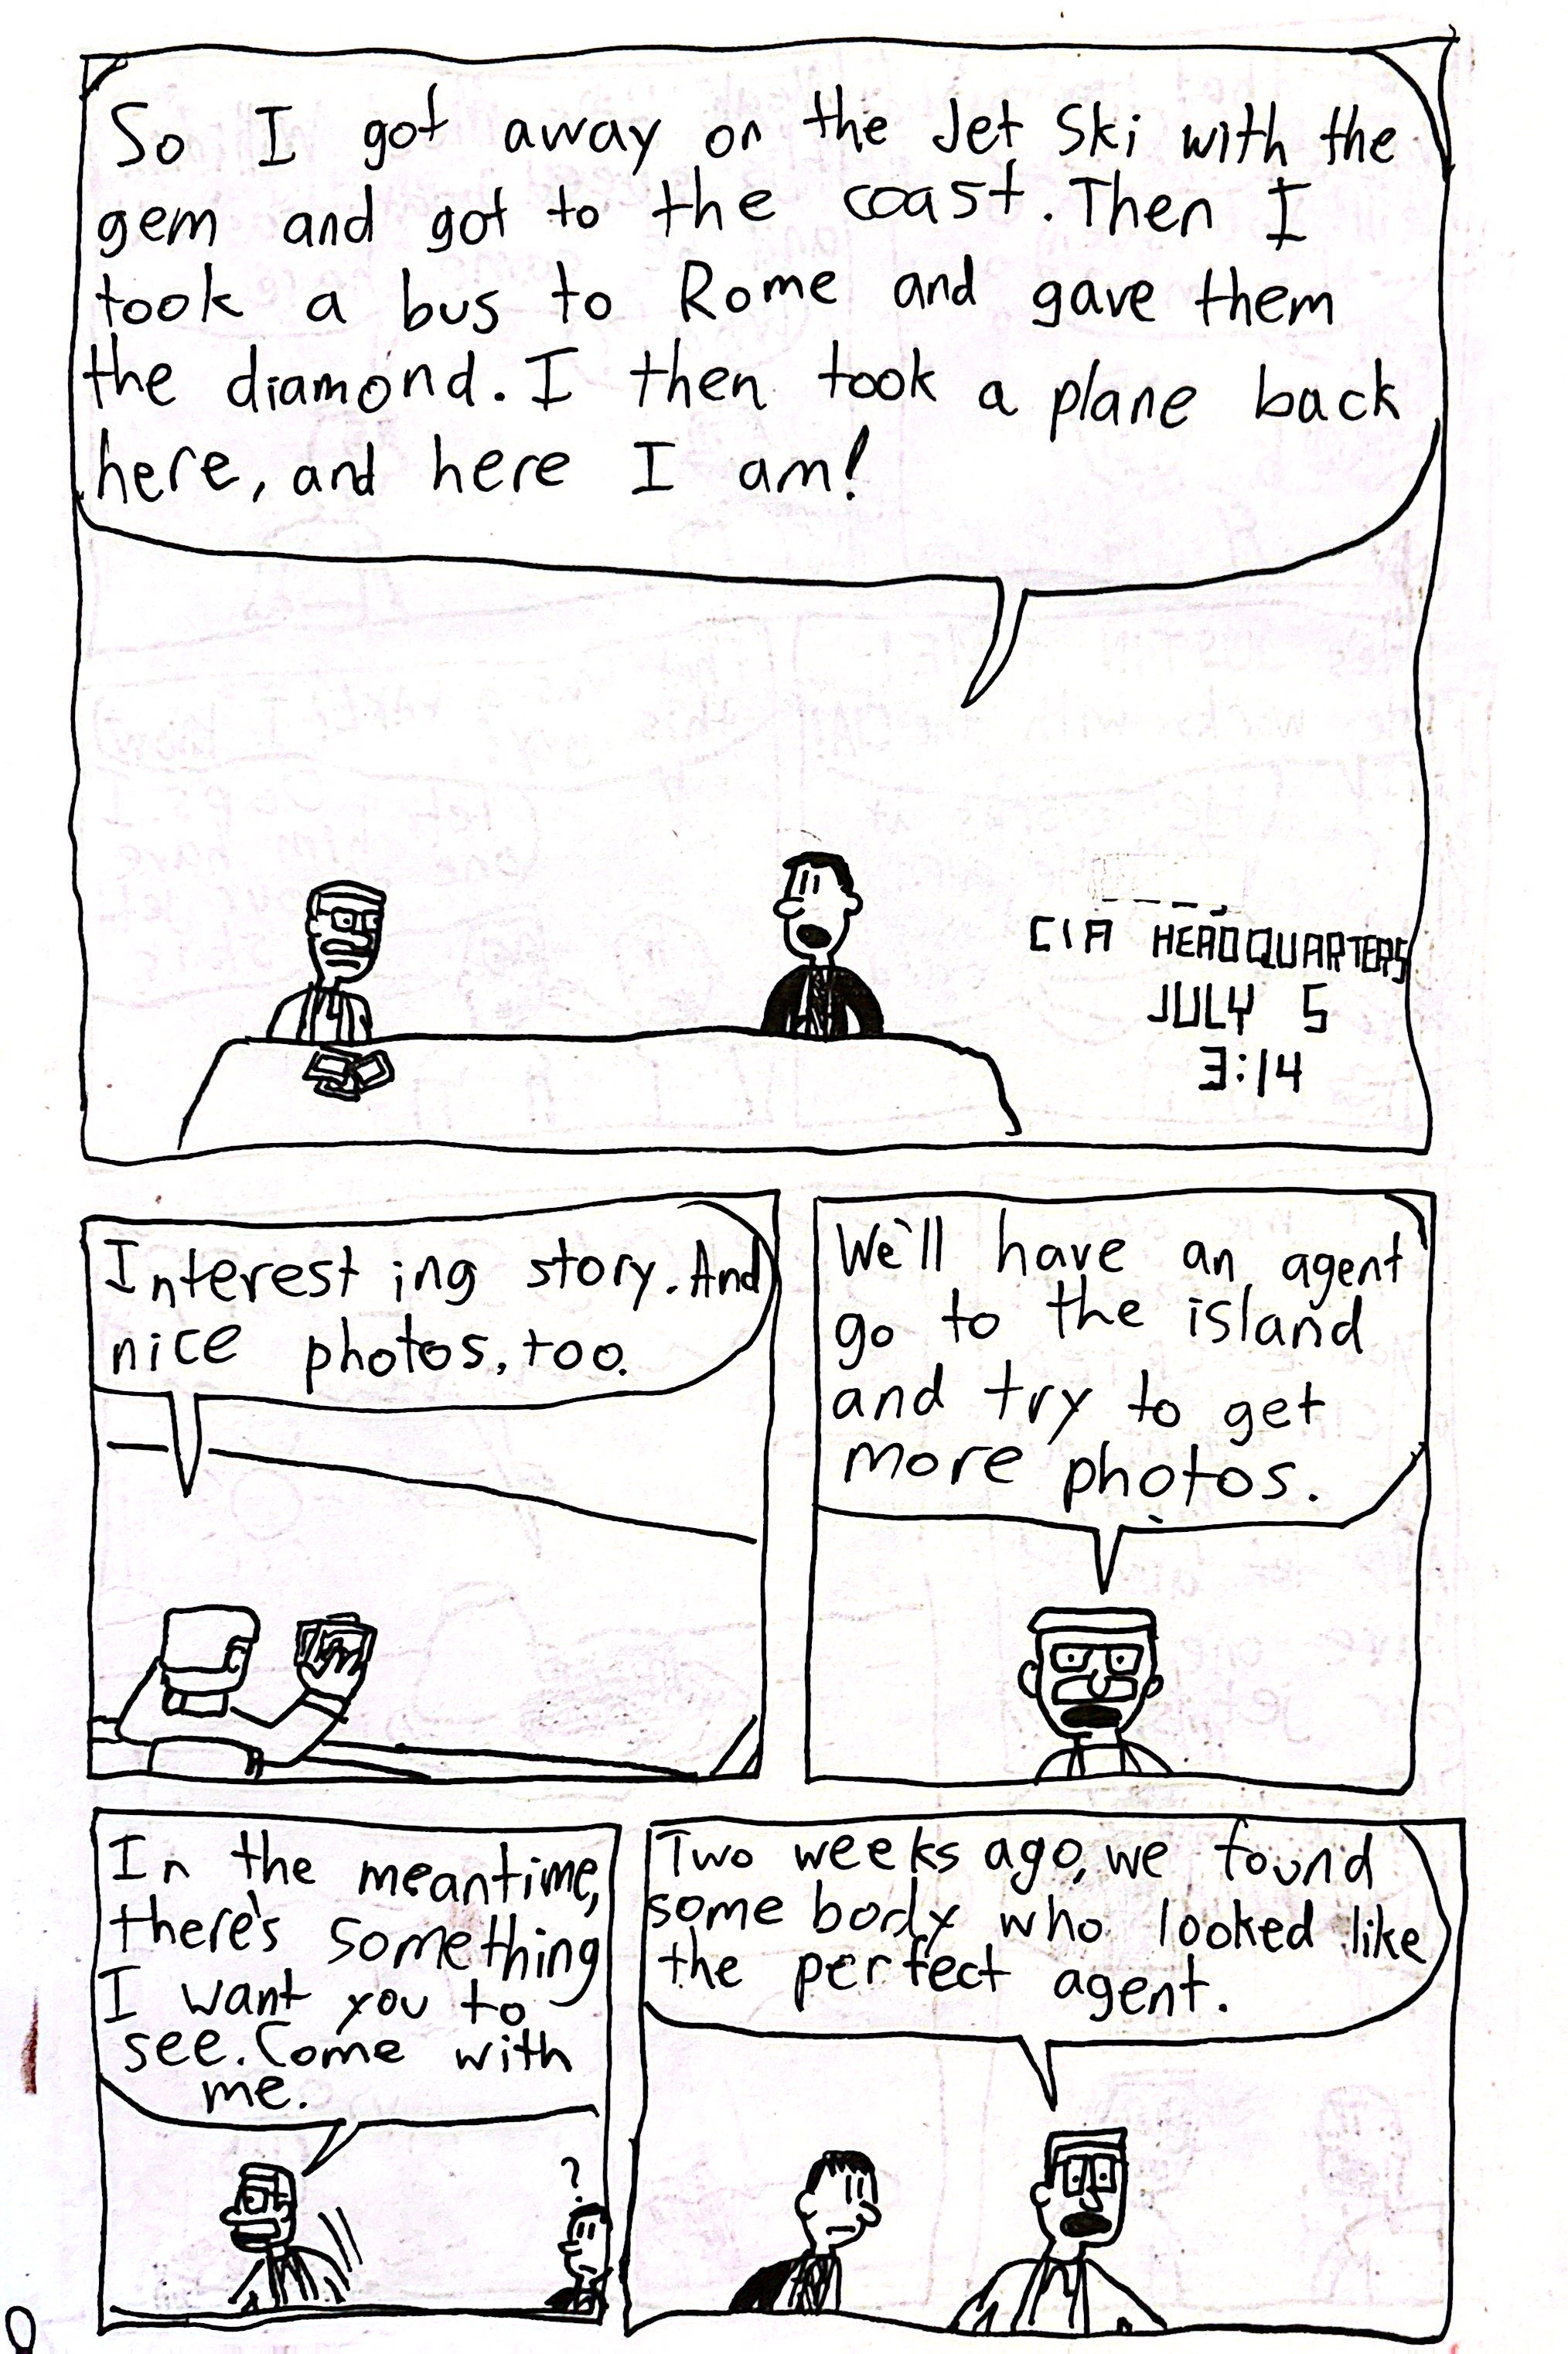 So I got away on the Jet Ski with the
gem and got to the coast. Then I
took a bus to Rome and gave them
the diamond. I then took a plane back
here, and here I am!
CIA HEADQUARTERS
JULY 5
3:14
Interest ing story. And
nice photos, too.
We'll have an agent
go to the island
and try to get
more photos.
In the meantime,
there's something
I want you to
see. Come with
me.
?
Two weeks ago, we found
some body who looked like
the perfect agent.